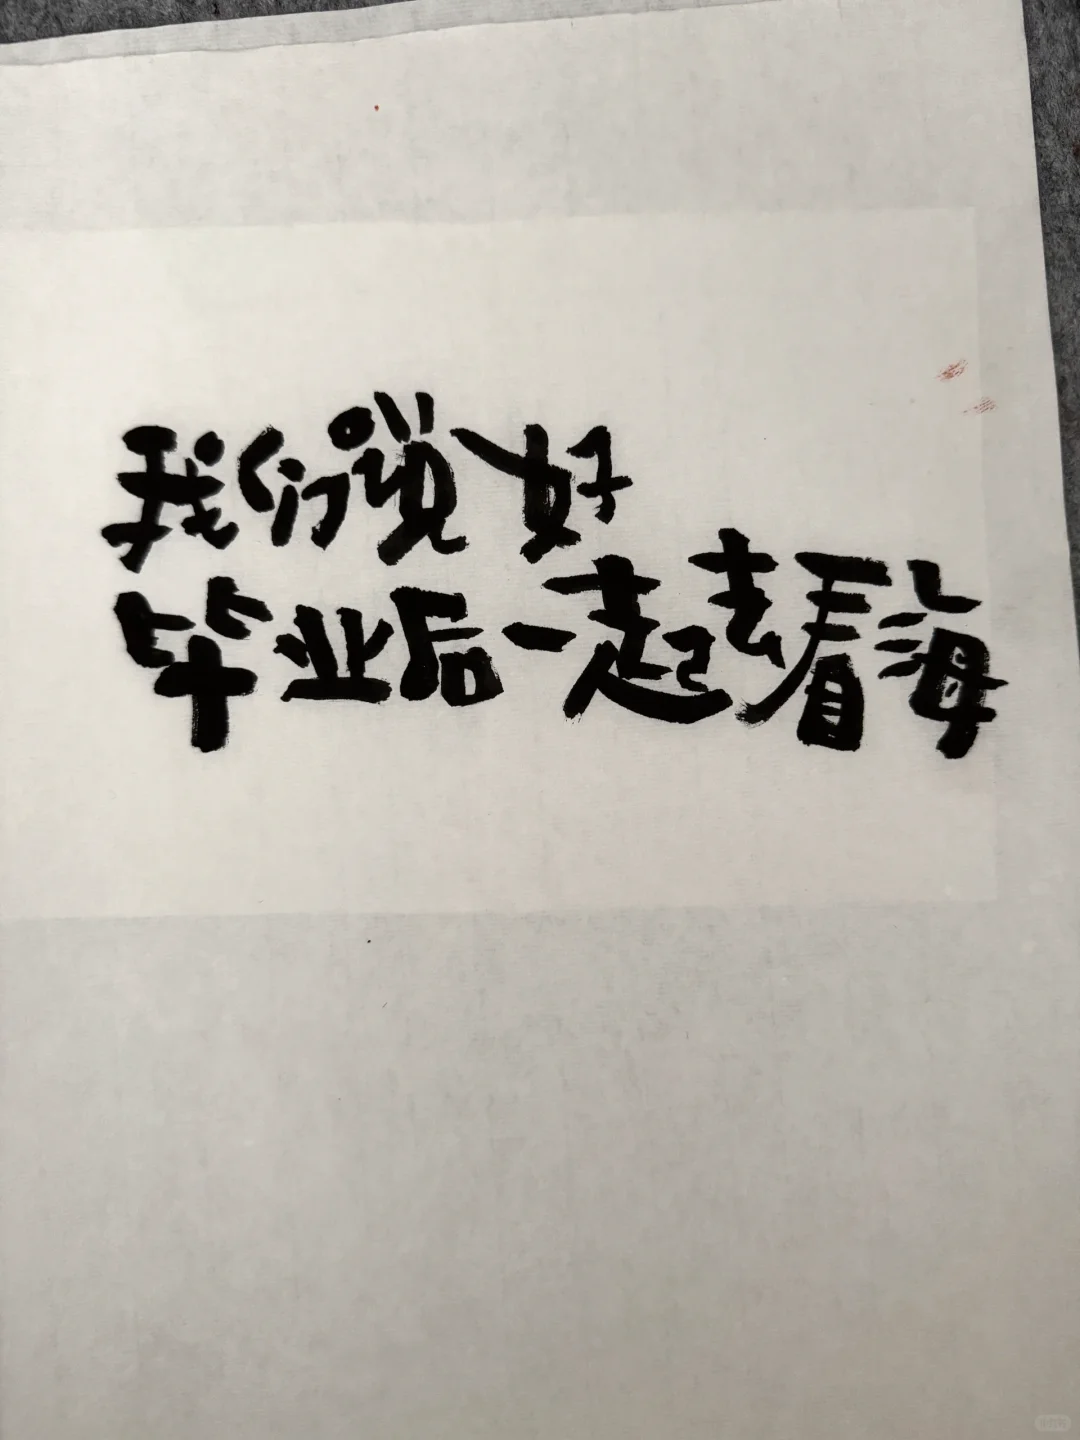 我们说好
毕业后一起去看海